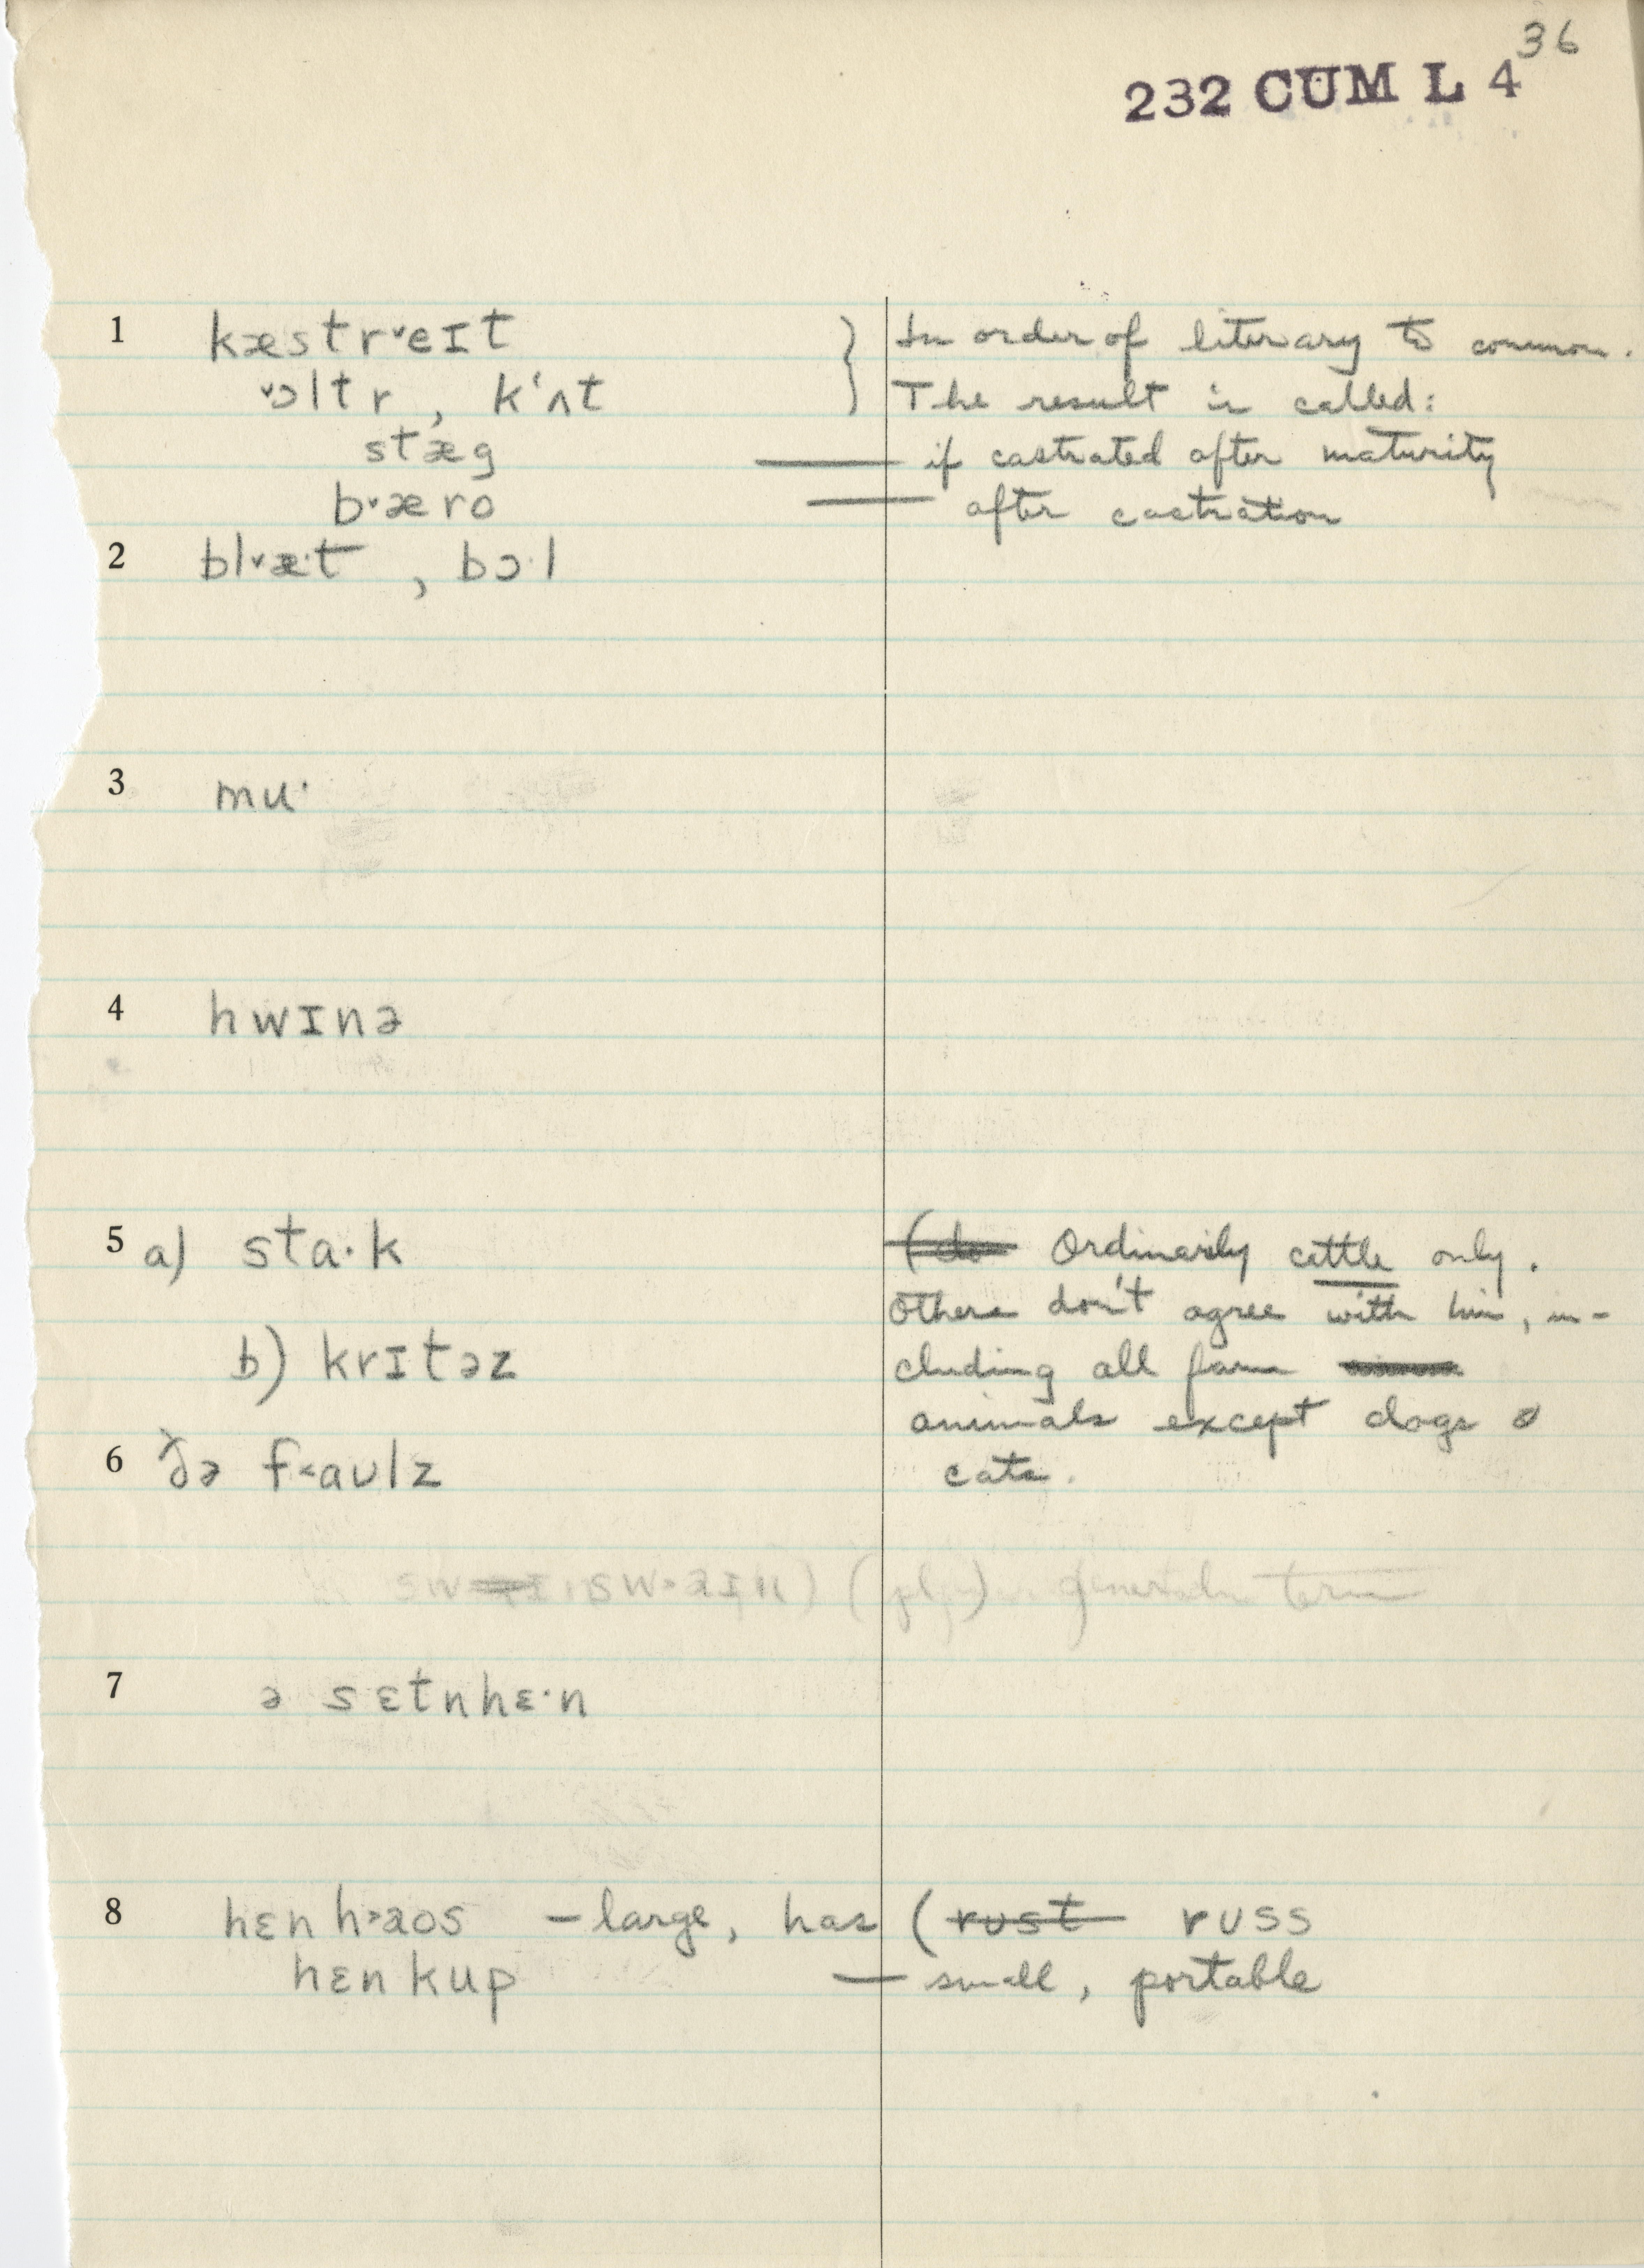 36
232 CUM L 4
1 kæstr˅eɪt } In order of literary to common.
˅ɔltr, kʻʌt The result is called:
stæg — if castrated after maturity
b˅æro — after castration
2 bl˅æ·t, bɔ·l
3 mu·
4 hwɪnə
5 a) sta·k Ordinarily cattle only.
Others don't agree with him, in-
b) krɪtəz cluding all farm
animals except dogs &
6 ðə f˂aʊlz cats.
sw˃aɪn) (pl.) general term
7 ə sɛtnhɛ·n
8 hɛnh˃aos – large, has (rust rʊss
hɛnkup — small, portable